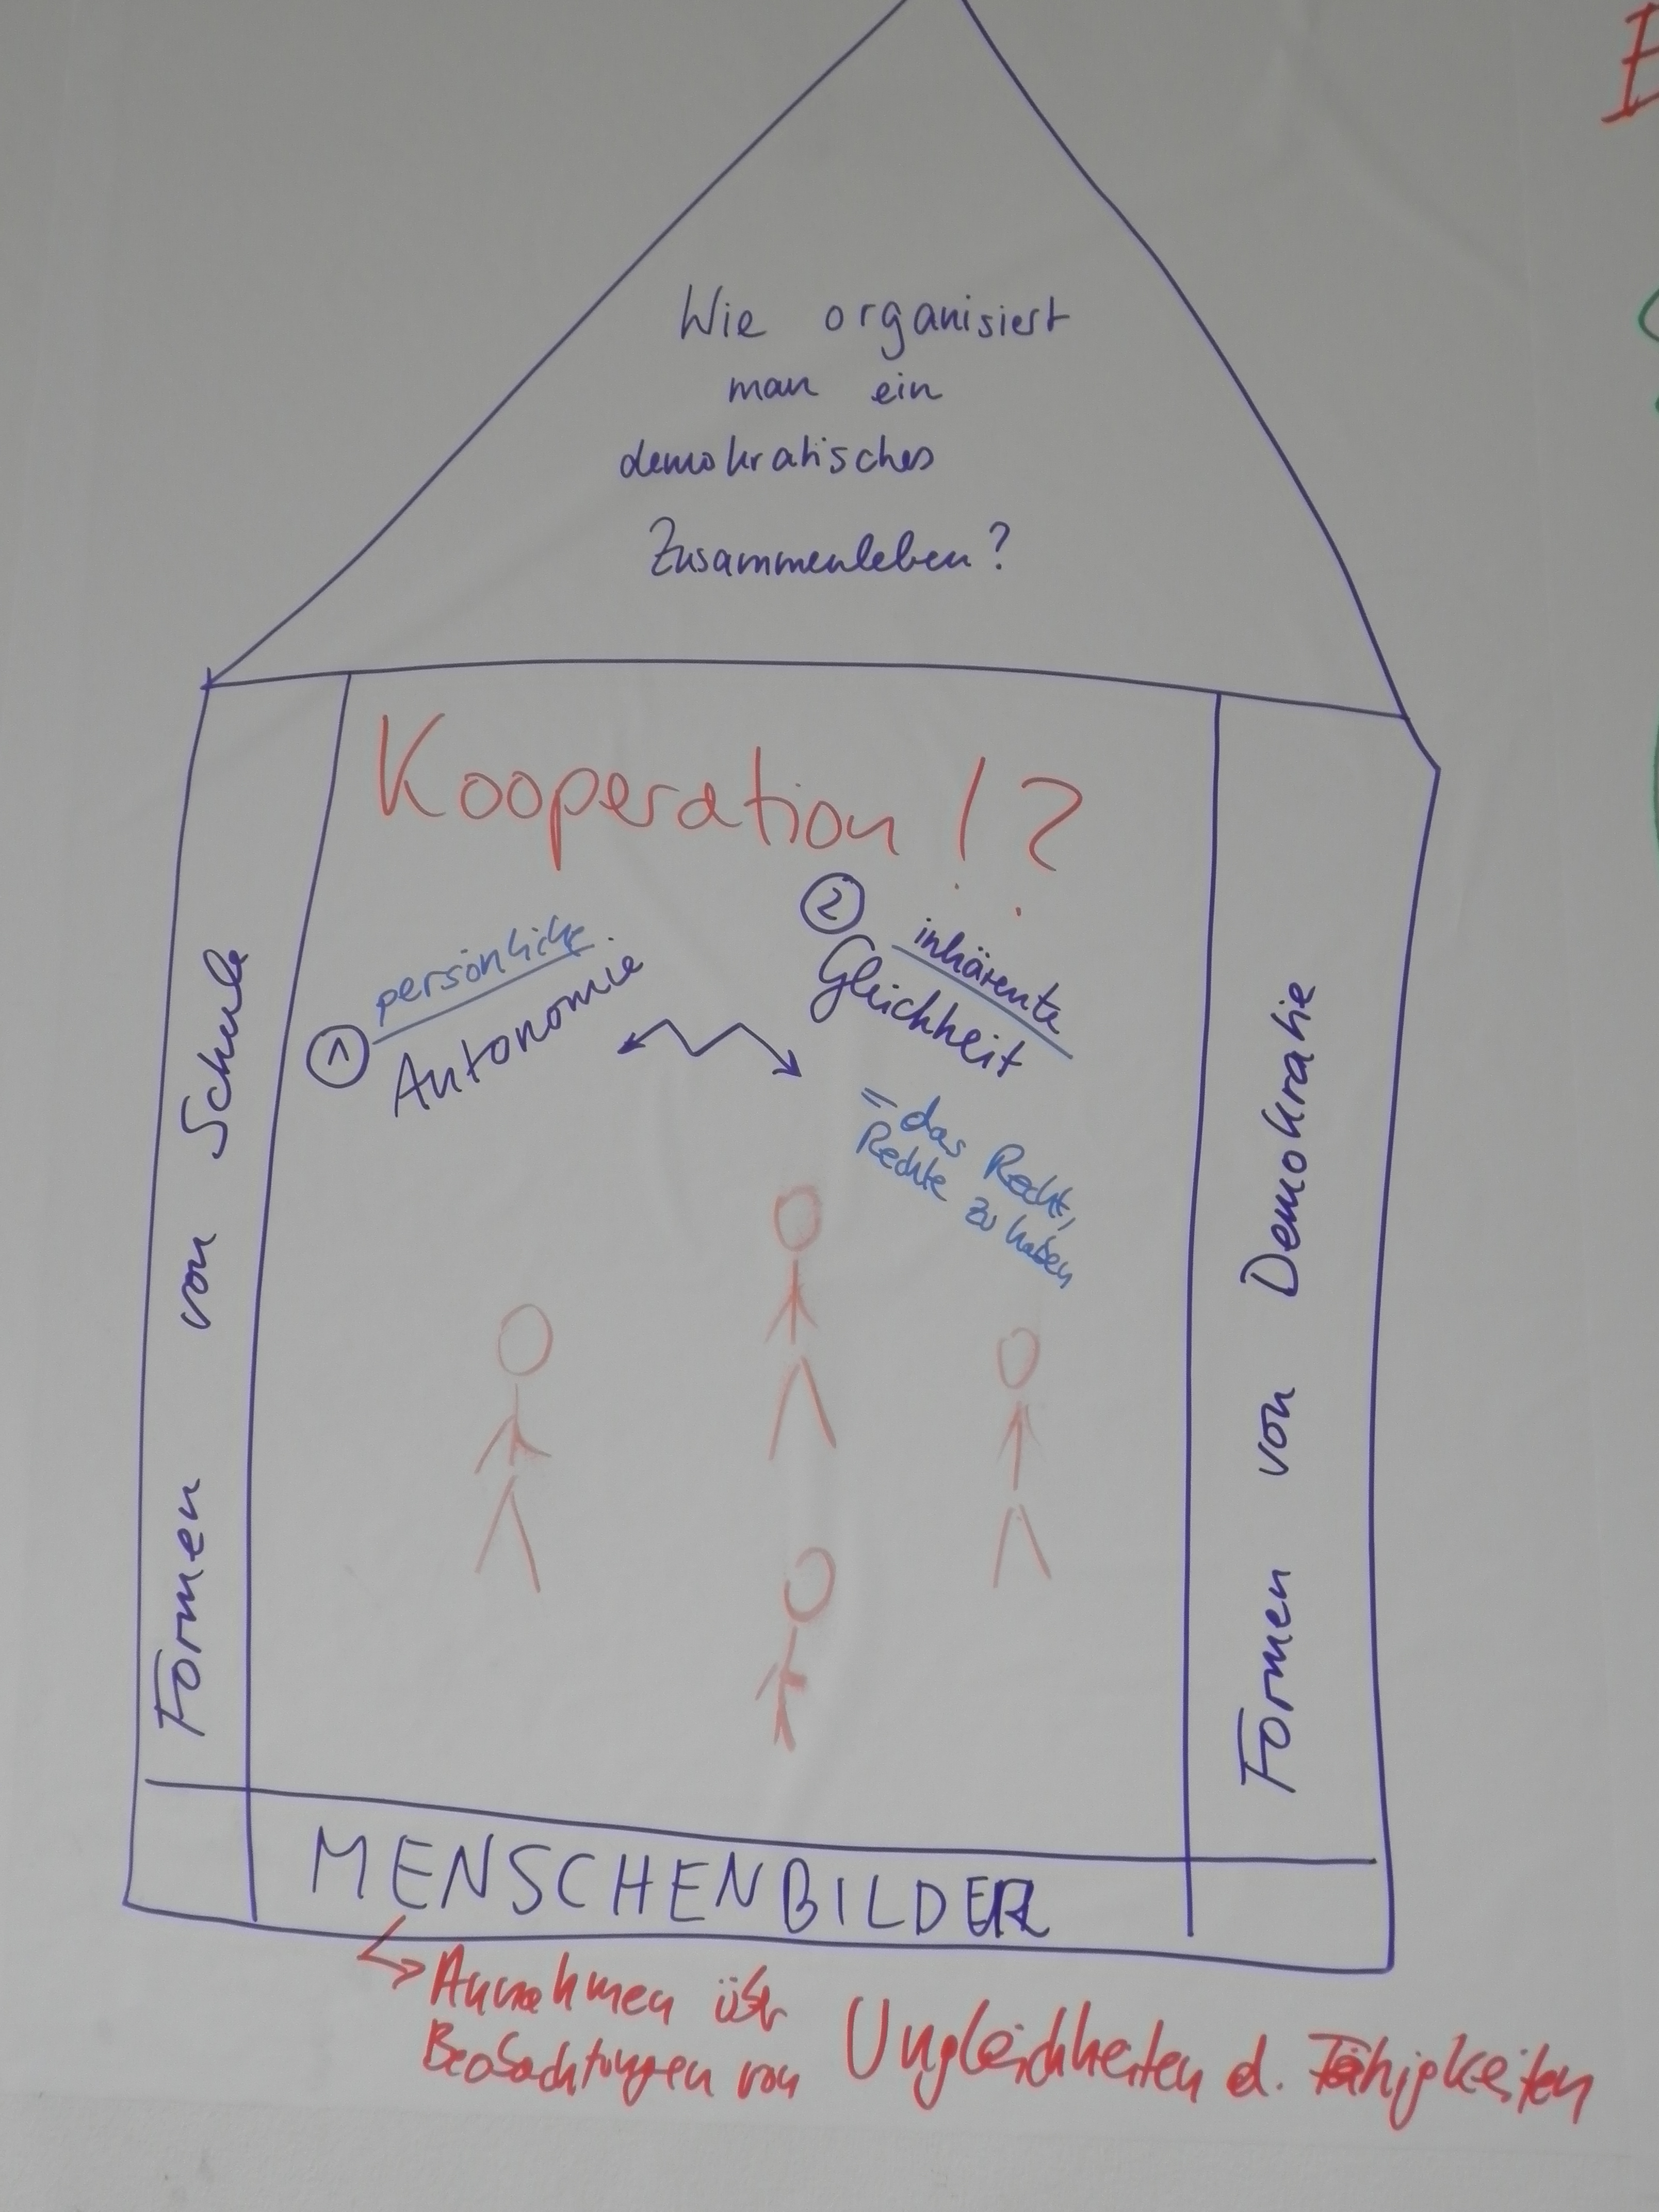 Wie organisiert
man ein
demokratisches
Zusammenleben?
Kooperation!?
① persönliche
Autonomie
② inhärente
Gleichheit
= das Recht,
Rechte zu haben
Formen von Schule
Formen von Demokratie
MENSCHENBILDER
Annahmen über
Beobachtungen von Ungleichheiten d. Fähigkeiten